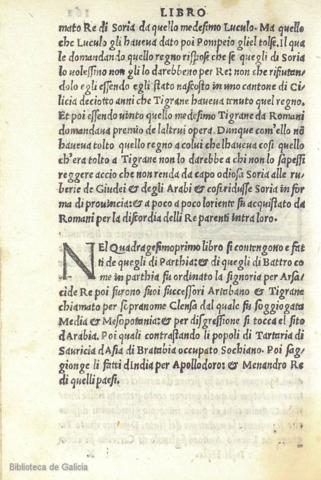 LIBRO
mato Re di Soria da quello medesimo Luculo. Ma quello
che Luculo gli haueua dato poi Pompeio gliel tolse. Il qua
le domandando quello regno rispose che se quegli di Soria
lo uolessino non gli lo darebbeno per Re; non che rifiutan/
dolo egli essendo egli stato nascosto in uno cantone di Ci/
licia deciotto anni che Tigrane haueua tenuto quel regno.
Et poi essendo uinto quello medesimo Tigrane da Romani
domandaua premio de laltrui opera. Dunque com'ello nō
haueua tolto quello regno a colui che lhaueua cosi quello
ch'era tolto a Tigrane non lo darebbe a chi non lo sapessi
reggere accio che non renda da capo odiosa Soria alle ru/
berie de Giudei & degli Arabi & cosi ridusse Soria in for
ma di prouincia; & a poco a poco loriente fu acquistato da
Romani per la discordia delli Re parenti intra loro.
NEl Quadragesimoprimo libro si contengono e fat
ti de quegli di Parthia; & di quegli di Battro co
me in parthia fu ordinato la signoria per Arsa/
cide Re poi furono suoi successori Artabano & Tigrane
chiamato per sopranome Clensa dal quale fu soggiogata
Media & Mesopotania; & per disgressione si tocca el sito
d'Arabia. Poi quali contrastando li popoli di Tartaria di
Sauricia d'Asia di Bratabia occupato Sochiano. Poi sag/
gionge li fatti d'India per Apollodoros & Menandro Re
di quelli paesi.
Biblioteca de Galicia